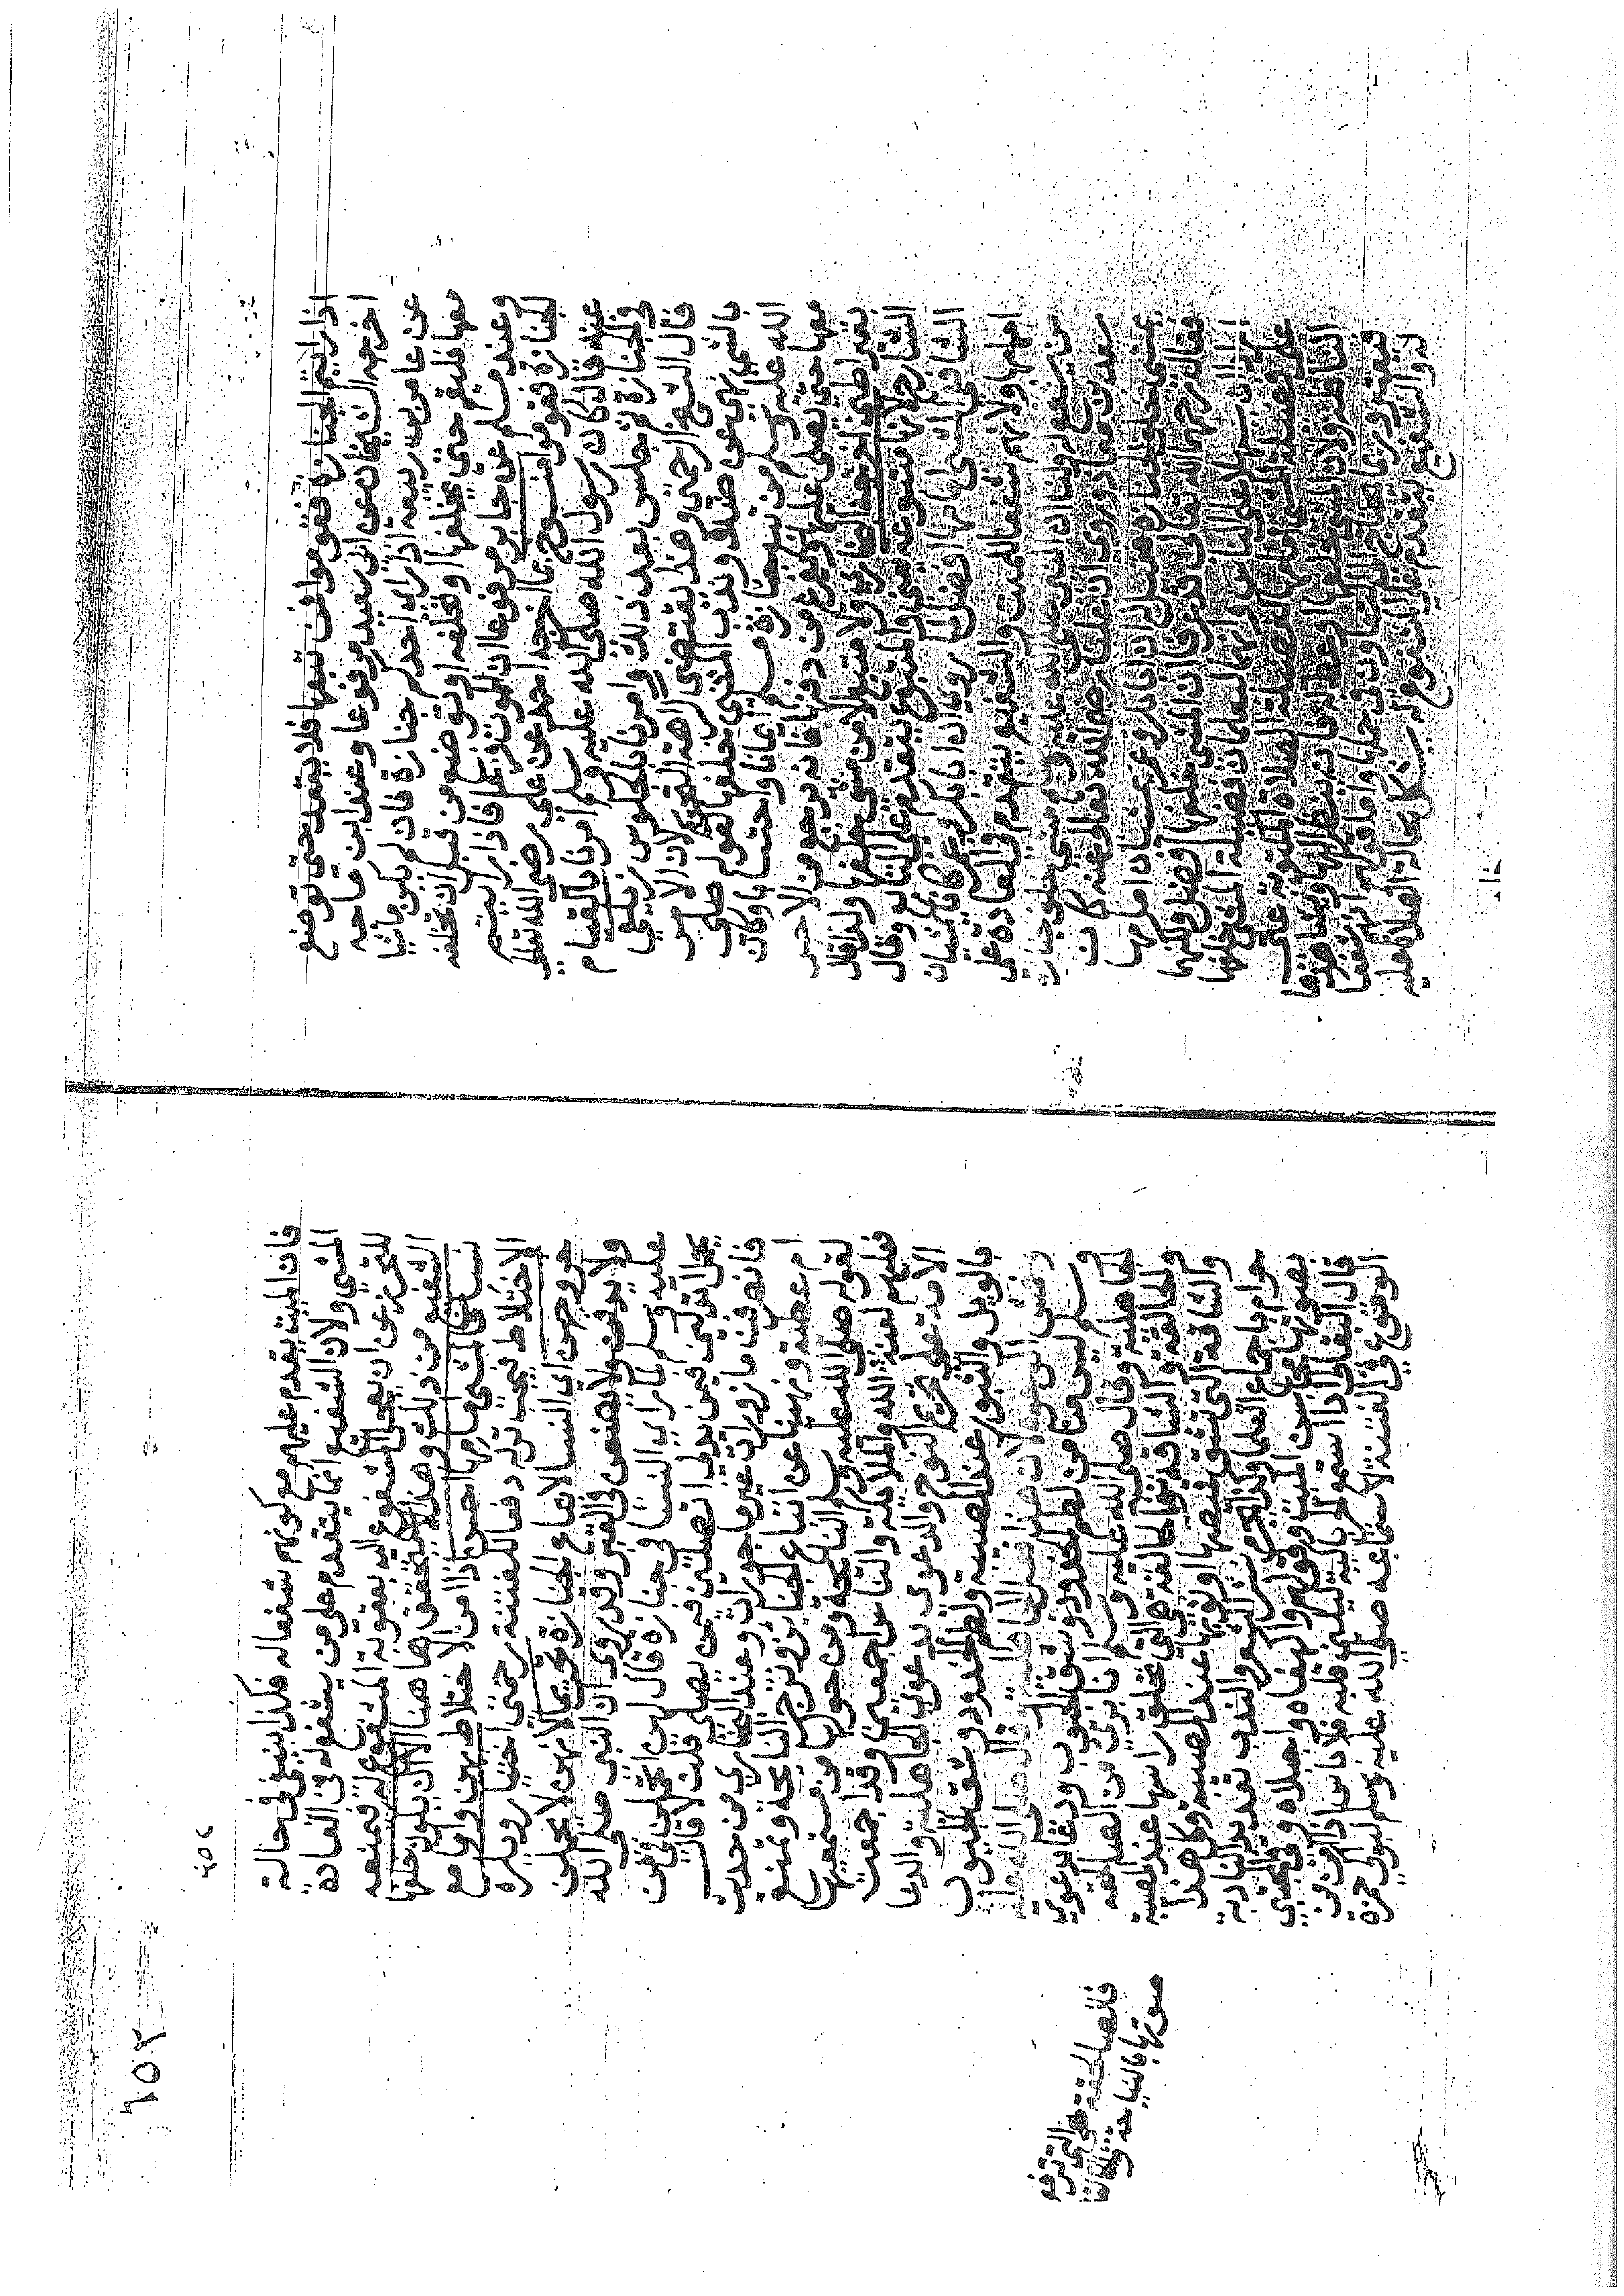 اذا رايتم الجنازة فقوموا فمن تبعها فلا يقعد حتى توضع
اخرجه الشيخان عن ابي سعيد مرفوعا وعند ابن ماجه
عن عامر بن ربيعة اذا راى احدكم جنازة فان لم يكن ماشيا
معها فليقم حتى يخلفها او تخلفه او توضع من قبل ان تخلفه
وعند مسلم عن جابر مرفوعا ان الموت فزع فاذا رايتم
الجنازة فقوموا منسوخ بما اخرجه احمد عن علي رضي الله تعالى
عنه قال كان رسول الله صلى الله عليه وسلم امرنا بالقيام
في الجنازة ثم جلس بعد ذلك وامرنا بالجلوس زيلعي
قال الشيخ الرحمتي وهذا يقتضي كراهة التحريم لان الامر
بالشي نهي عن ضده وندب المشي خلفها لقوله صلى
الله عليه وسلم من تبع جنازة مسلم ايمانا واحتسابا وكان
معها حتى يصلى عليها ويفرغ من دفنها فانه يرجع من الاجر
بقيراطين اخرجه البخاري ولا متبع الا من مشى خلفها ولذا قال
الشارح لانها متبوعة يعني والمتبوع يتقدم على التابع وقال
الشافعي المشي امامها افضل لما روي ان ابا بكر وعمر كانا يمشيان
امامها ولانهم شفعا للميت والشفيع يتقدم في العادة على
من يشفع له ولنا ان النبي صلى الله عليه وسلم مشى خلف جنازة
سعد بن معاذ وروي ان عليا رضي الله تعالى عنه كان
يمشي خلف الجنازة فقيل له ان ابا بكر وعمر يمشيان امامها
فقال يرحمهما الله تعالى قد عرفا ان المشي خلفها افضل ولكنهما
ارادا ان يسهلا على الناس وانهما ليعلمان ان فضيلة المشي خلفها
على فضيلة المشي امامها كفضيلة الصلاة المكتوبة على
النافلة ولان المشي خلفها اوعظ له فانه ينظر اليها ويشاهدها
فيعتبر وربما يحتاج الى التعاون في حملها واما قوله انهم شفعا
له والشفيع يتقدم على المشفوع له يشكل بحالة الصلاة عليه
فان الميت يقدم عليهم مع كونهم شفعا له فكذا ينبغي في حالة
المشي ولان الشفيع انما يتقدم على من يشفع له في العادة
للتحرز عن ان يعجل المشفوع اليه بعقوبة المشفوع له فيمنعه
الشفيع من ذلك وهذا لا يتحقق هاهنا الا ان يكون خلفها
نسا فالمشي امامها احسن اذا من الاختلاط بهن واما مع
الاختلاط فيجب تركه دفعا للفتنة رحمتي اختيار ويكره
خروجهن اي النسا لاتباع الجنازة تحريما لانهن لا يحملن
ولا يدفن ولا يضعن في القبر وقد روي ان النبي صلى الله
عليه وسلم لما راى النسا في جنازة قال لهن اتحملن فيمن
يحمل اتدلين فيمن يدلي اتصلين فيمن يصلي قلن لا قال
فانصرفن مازورات غير ماجورات وعند البخاري من حديث
ام عطية نهينا عن اتباع الجنائز وتزجر النايحة وتمنع
لقوله صلى الله عليه وسلم النايحة ومن حولها من مستمعيها
فعليهم لعنة الله والملائكة والناس اجمعين وقد اجمعت
الامة على تحريم النوح والدعوى بدعوى الجاهلية والدعا
بالويل والثبور عند المصيبة ولطم الخدود وشق الجيوب
وسلم ليس منا من لطم الخدود وشق الجيوب ودعا بدعوى
الجاهلية وقال صلى الله عليه وسلم انا بري من الصالقة
والحالقة والشاقة فالحالقة هي التي تحلق راسها عند المصيبة
والشاقة التي تشق قميصها او ثوبها عند المصيبة وكل هذا
حرام باجماع العلما وكذا يحرم نشر الشعر والندب بتعديد النادبة
بصوتها محاسن الميت وقولها واكهفاه واجبلاه وفي المجتبى
قال البقالي اذا استمع الى باكية ليلين قلبه فلا باس اذا امن من
الوقوع في الفتنة لاستماعه صلى الله عليه وسلم لبواكي حمزة
فالصالقة هي التي ترفع
صوتها بالنياحة